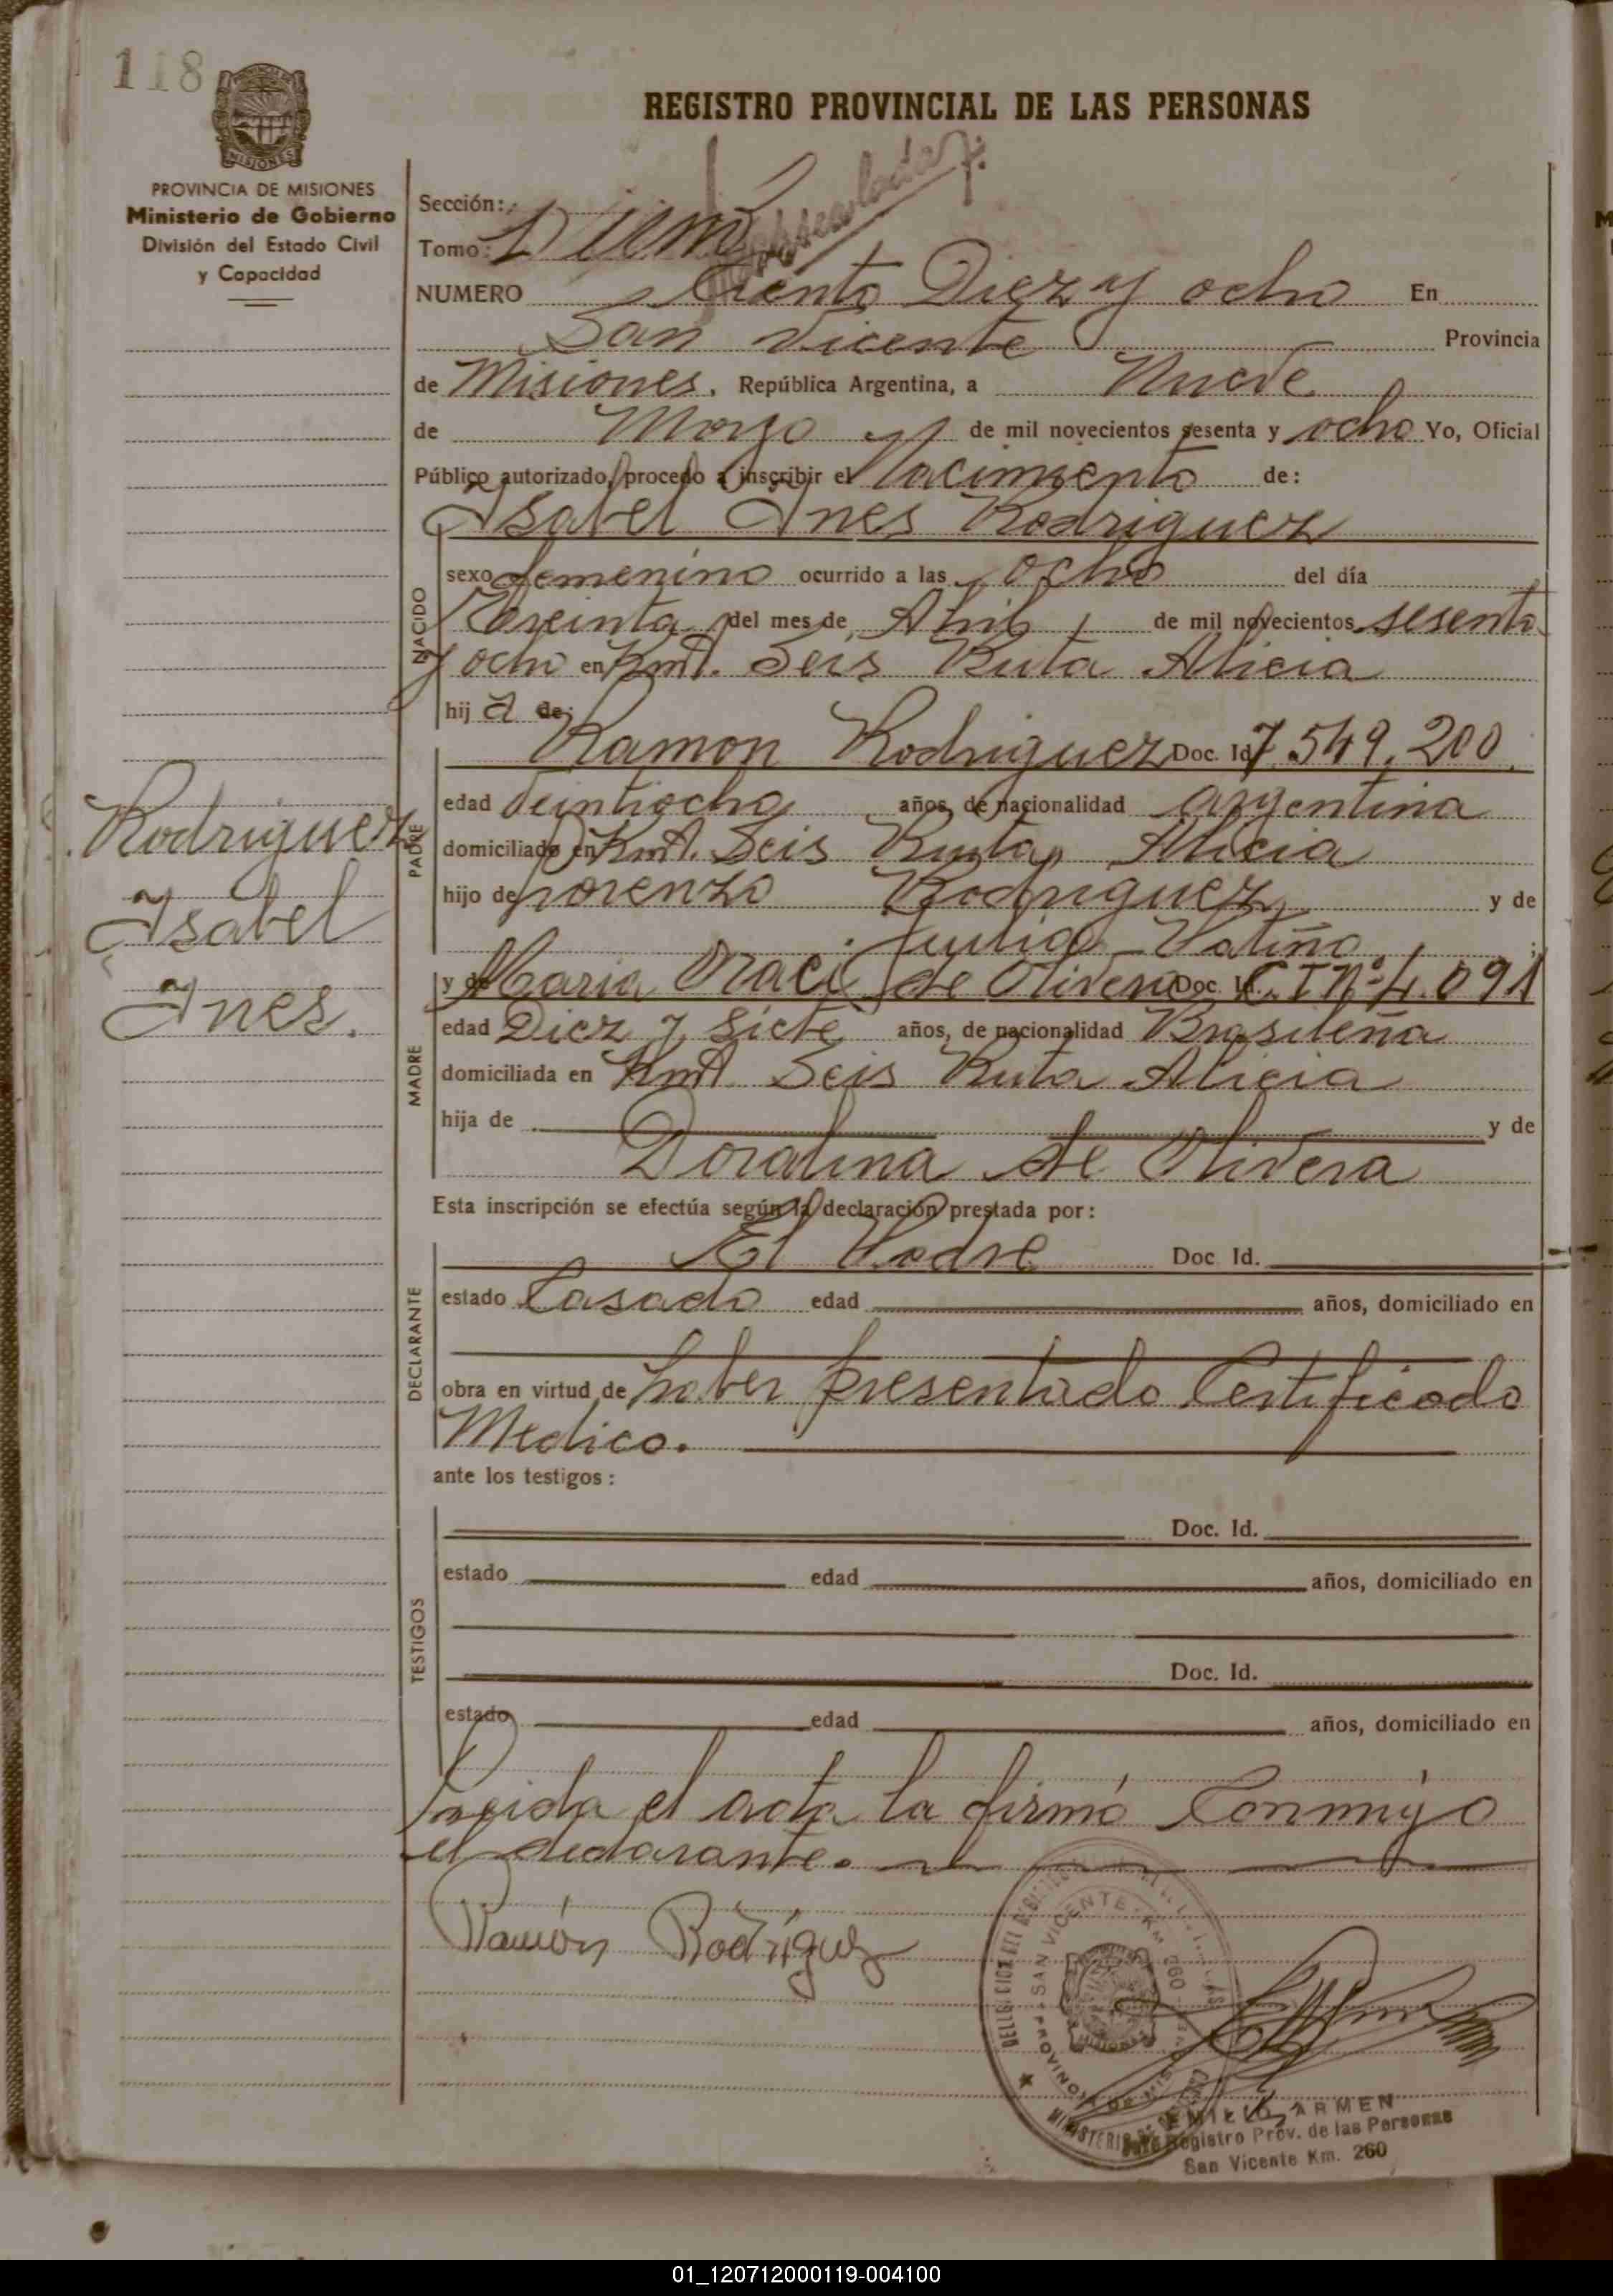 118
REGISTRO PROVINCIAL DE LAS PERSONAS
PROVINCIA DE MISIONES
Ministerio de Gobierno
División del Estado Civil
y Capacidad
Sección:
Tomo:
NUMERO Ciento Diez y ocho En
San Vicente Provincia
de Misiones. República Argentina, a Nueve
de Mayo de mil novecientos sesenta y ocho Yo, Oficial
Público autorizado, procedo a inscribir el Nacimiento de:
Isabel Ines Rodriguez
NACIDO
sexo femenino ocurrido a las ocho del día
Treinta del mes de Abril de mil novecientos sesenta
y ocho en Kmt. Seis Ruta Alicia
hij a de:
PADRE
Ramon Rodriguez Doc. Id 7.549.200
edad Veintiocho años, de nacionalidad argentina
domiciliado en Kmt. Seis Ruta Alicia
hijo de Lorenzo Rodriguez y de
Rodriguez
Isabel
Ines.
MADRE
y de Maria de Olivera Doc. Id. C. I Nº 4.091
edad Diez y Siete años, de nacionalidad Brasileña
domiciliada en Kmt Seis Ruta Alicia
hija de y de
Doralina de Olivera
Esta inscripción se efectúa según la declaración prestada por:
DECLARANTE
El Padre Doc. Id.
estado Casado edad años, domiciliado en
obra en virtud de haber presentado Certificado
Medico.
ante los testigos:
TESTIGOS
Doc. Id.
estado edad años, domiciliado en
Doc. Id.
estado edad años, domiciliado en
Leida el acta la firmó Conmigo
el declarante.
Ramón Rodríguez
SAN VICENTE - KM 260
PROVINCIA DE MISIONES
EMILIO ARMEN
Jefe Registro Prov. de las Personas
San Vicente Km. 260
01_120712000119-004100